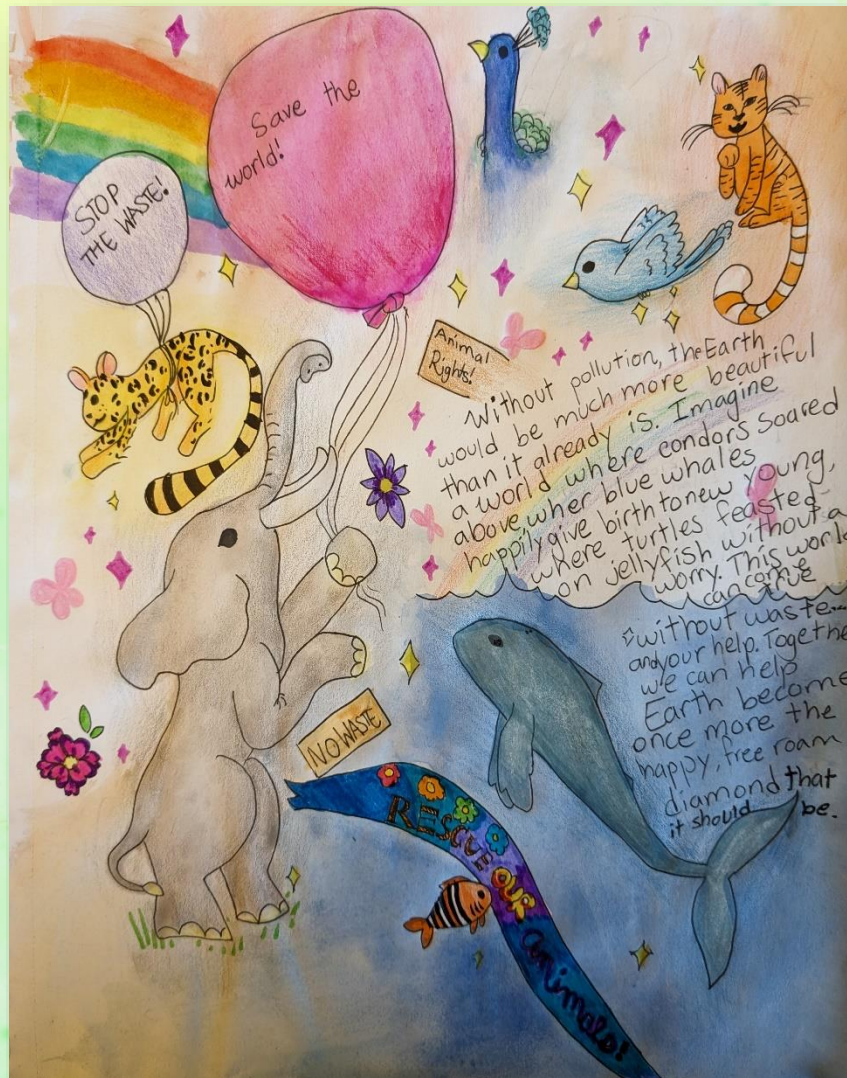 Save the
world!
STOP
THE WASTE!
Animal
Rights!
Without pollution, the Earth
would be much more beautiful
than it already is. Imagine
a world where condors soared
above, wher blue whales
happily give birth to new young,
where turtles feasted
on jellyfish without a
worry. This world
can come
without waste...
and your help. Together
we can help
Earth become
once more the
happy, free roam
diamond that
it should be.
NO WASTE
RESCUE OUR animals!